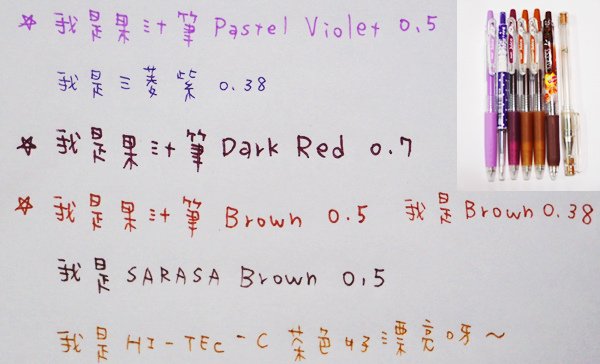 ☆ 我是果汁筆 Pastel Violet 0.5
我是三菱紫 0.38
☆ 我是果汁筆 Dark Red 0.7
☆ 我是果汁筆 Brown 0.5 我是Brown 0.38
我是 SARASA Brown 0.5
我是 HI-TEC-C 茶色好漂亮呀～